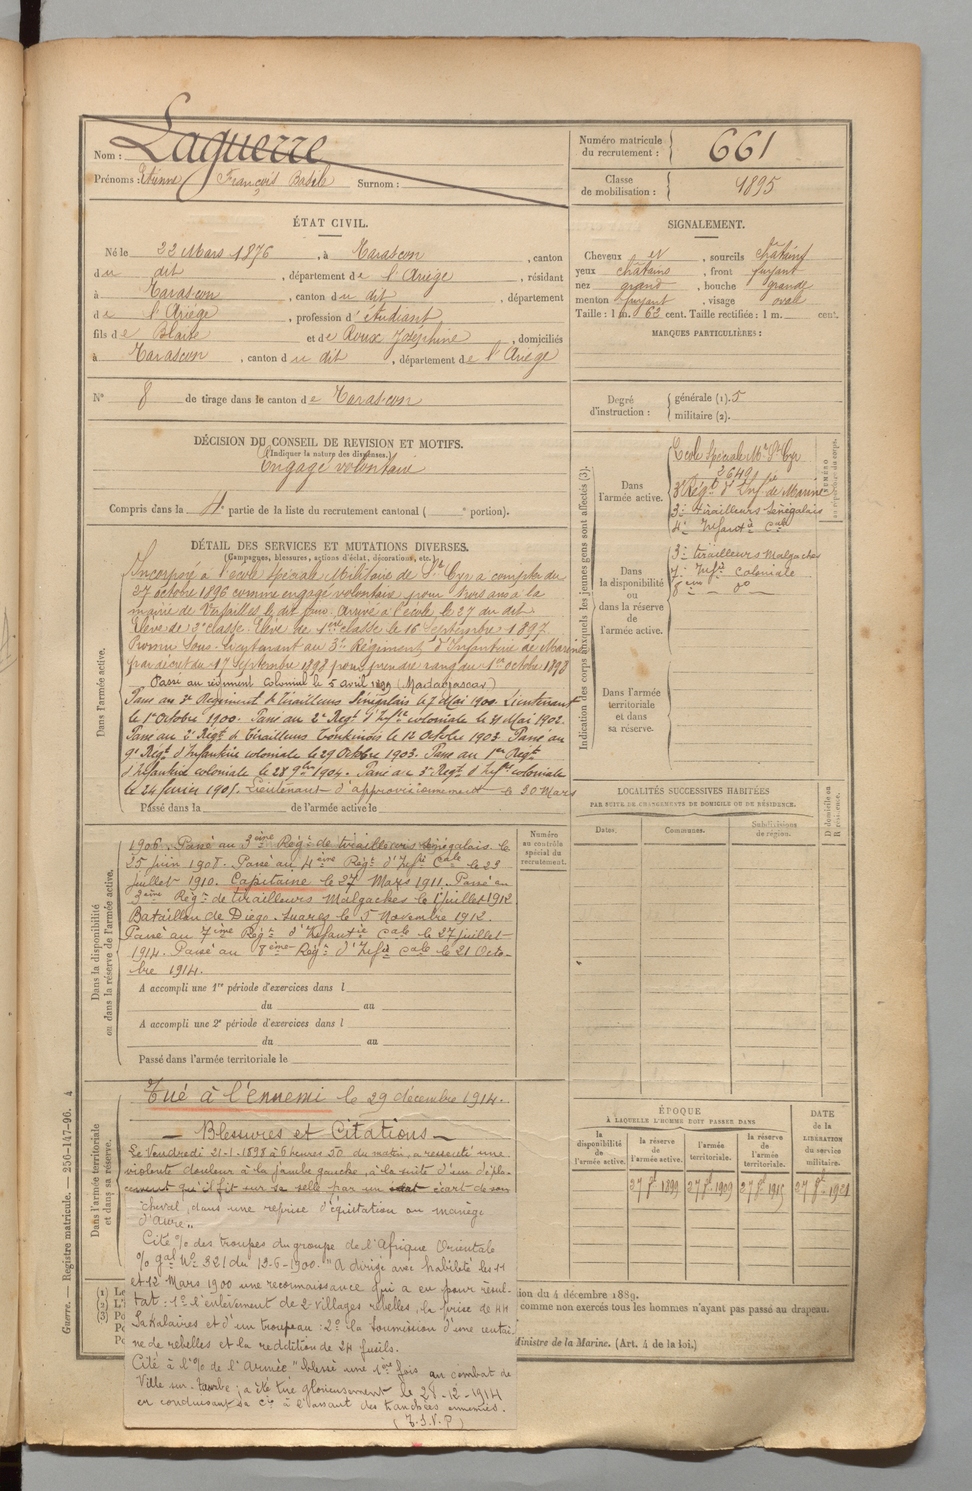 Nom : Laguerre
Prénoms : Etienne François Basile Surnom :
Numéro matricule
du recrutement : 661
Classe
de mobilisation : 1895
ÉTAT CIVIL.
Né le 22 Mars 1876, à Tarascon, canton
du dit, département de l'Ariège, résidant
à Tarascon, canton du dit, département
de l'Ariège, profession d'étudiant
fils de Blaise et de Roux Joséphine, domiciliés
à Tarascon, canton du dit, département de l'Ariège
SIGNALEMENT.
Cheveux et, sourcils châtains
yeux châtains, front fuyant
nez grand, bouche grande
menton fuyant, visage ovale
Taille : 1 m. 62 cent. Taille rectifiée : 1 m. cent.
MARQUES PARTICULIÈRES :
N° 8 de tirage dans le canton de Tarascon
Degré
d'instruction :
générale (1). 5
militaire (2).
DÉCISION DU CONSEIL DE REVISION ET MOTIFS.
(Indiquer la nature des dispenses.)
Engagé volontaire
Compris dans la 4e partie de la liste du recrutement cantonal ( e portion).
Indication des corps auxquels les jeunes gens sont affectés (3).
Dans
l'armée active.
Ecole Spéciale Mre St Cyr
2649
3e Régt d'Infie de Marine
3e tirailleurs Sénégalais
4e Infantie Cale
NUMÉRO
Dans
la disponibilité
ou
dans la réserve
de
l'armée active.
3e tirailleurs Malgaches
7e Infie coloniale
8ème - do -
Dans l'armée
territoriale
et dans
sa réserve.
DÉTAIL DES SERVICES ET MUTATIONS DIVERSES.
(Campagnes, blessures, actions d'éclat, décorations, etc.)
Dans l'armée active.
Incorporé à l'école spéciale Militaire de St Cyr à compter du
27 octobre 1896 comme engagé volontaire pour trois ans à la
mairie de Versailles le dit jour. Arrivé à l'école le 27 du dit
Elève de 2e classe. Elève de 1ère classe le 16 Septembre 1897.
Promu Sous-Lieutenant au 3e Régiment d'Infanterie de Marine
par décret du 17 Septembre 1898 pour prendre rang du 1er octobre 1898
Passé au régiment colonial le 5 avril 1899 (Madagascar)
Passé au 3e Régiment de Tirailleurs Sénégalais le 7 Mai 1900. Lieutenant
le 1er Octobre 1900. Passé au 2e Régt d'Infie coloniale le 31 Mai 1902.
Passé au 2e Régt de Tirailleurs Tonkinois le 14 Octobre 1903. Passé au
9e Régt d'Infanterie coloniale le 29 Octobre 1903. Passé au 1er Régt
d'Infanterie coloniale le 28 9bre 1904. Passé au 3e Régt d'Infie coloniale
le 24 février 1905. Lieutenant d'approvisionnement le 30 Mars
Passé dans la de l'armée active le
Dans la disponibilité
ou dans la réserve de l'armée active.
1906. Passé au 3ème Régt de tirailleurs sénégalais le
25 juin 1908. Passé au 4ème Régt d'Infie Cale le 23
juillet 1910. Capitaine le 27 Mars 1911. Passé au
3ème Régt de tirailleurs Malgaches le 1er juillet 1912
Bataillon de Diégo-Suarez le 5 Novembre 1912.
Passé au 7ème Régt d'Infantie Cale le 27 juillet
1914. Passé au 8ème Régt d'Infie Cale le 21 Octo-
bre 1914.
A accompli une 1re période d'exercices dans l
du au
A accompli une 2e période d'exercices dans l
du au
Passé dans l'armée territoriale le
Numéro
au contrôle
spécial du
recrutement.
LOCALITÉS SUCCESSIVES HABITÉES
PAR SUITE DE CHANGEMENTS DE DOMICILE OU DE RÉSIDENCE.
Dates. Communes. Subdivisions
de région.
D domicile ou
R résidence.
Dans l'armée territoriale
et dans sa réserve.
Tué à l'ennemi le 29 décembre 1914.
— Blessures et Citations —
Le Vendredi 21-1-1898 à 6 heures 50 du matin, a ressenti une
violente douleur à la jambe gauche, à la suite d'un dépla-
cement qu'il fit sur sa selle par un écart de son
cheval, dans une reprise d'équitation au manège
d'Aure"
Cité % des troupes du groupe de l'Afrique Orientale
% gal No 321 du 12-6-1900. "A dirigé avec habileté les 11
et 12 Mars 1900 une reconnaissance qui a eu pour résul-
tat : 1° l'enlèvement de 2 villages rebelles, la prise de 44
Sakalaves et d'un troupeau : 2° la soumission d'une centai-
ne de rebelles et la reddition de 24 fusils.
Cité à l'% de l'Armée "blessé une 1ère fois au combat de
Ville sur-tourbe, a été tué glorieusement le 28-12-1914
en conduisant sa Cie à l'assaut des tranchées ennemies.
(T.S.V.P)
ÉPOQUE
À LAQUELLE L'HOMME DOIT PASSER DANS
la
disponibilité
de
l'armée active.
la réserve
de
l'armée active.
l'armée
territoriale.
la réserve
de
l'armée
territoriale.
DATE
de la
LIBÉRATION
du service
militaire.
27 8bre 1899 27 8bre 1909 27 8bre 1915 27 8bre 1921
ion du 4 décembre 1889.
comme non exercés tous les hommes n'ayant pas passé au drapeau.
Ministre de la Marine. (Art. 4 de la loi.)
Guerre. — Registre matricule. — 256-147-96. 4